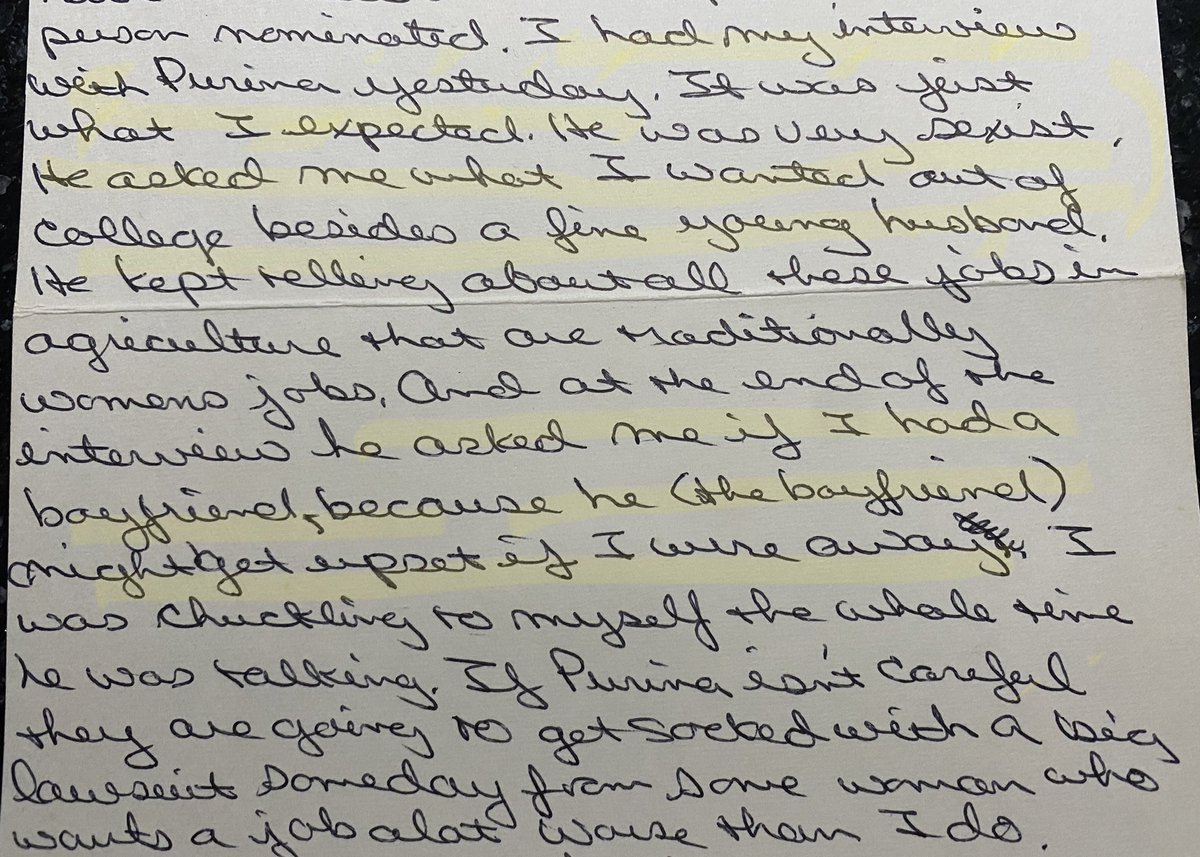 person nominated. I had my interview
with Purina yesterday. It was just
what I expected. He was very sexist.
He asked me what I wanted out of
college besides a fine young husband.
He kept telling about all these jobs in
agriculture that are traditionally
womens jobs. And at the end of the
interview he asked me if I had a
boyfriend, because he (the boyfriend)
might get upset if I were away. I
was chuckling to myself the whole time
he was talking. If Purina isn't careful
they are going to get socked with a big
lawsuit someday from some woman who
wants a job alot worse than I do.